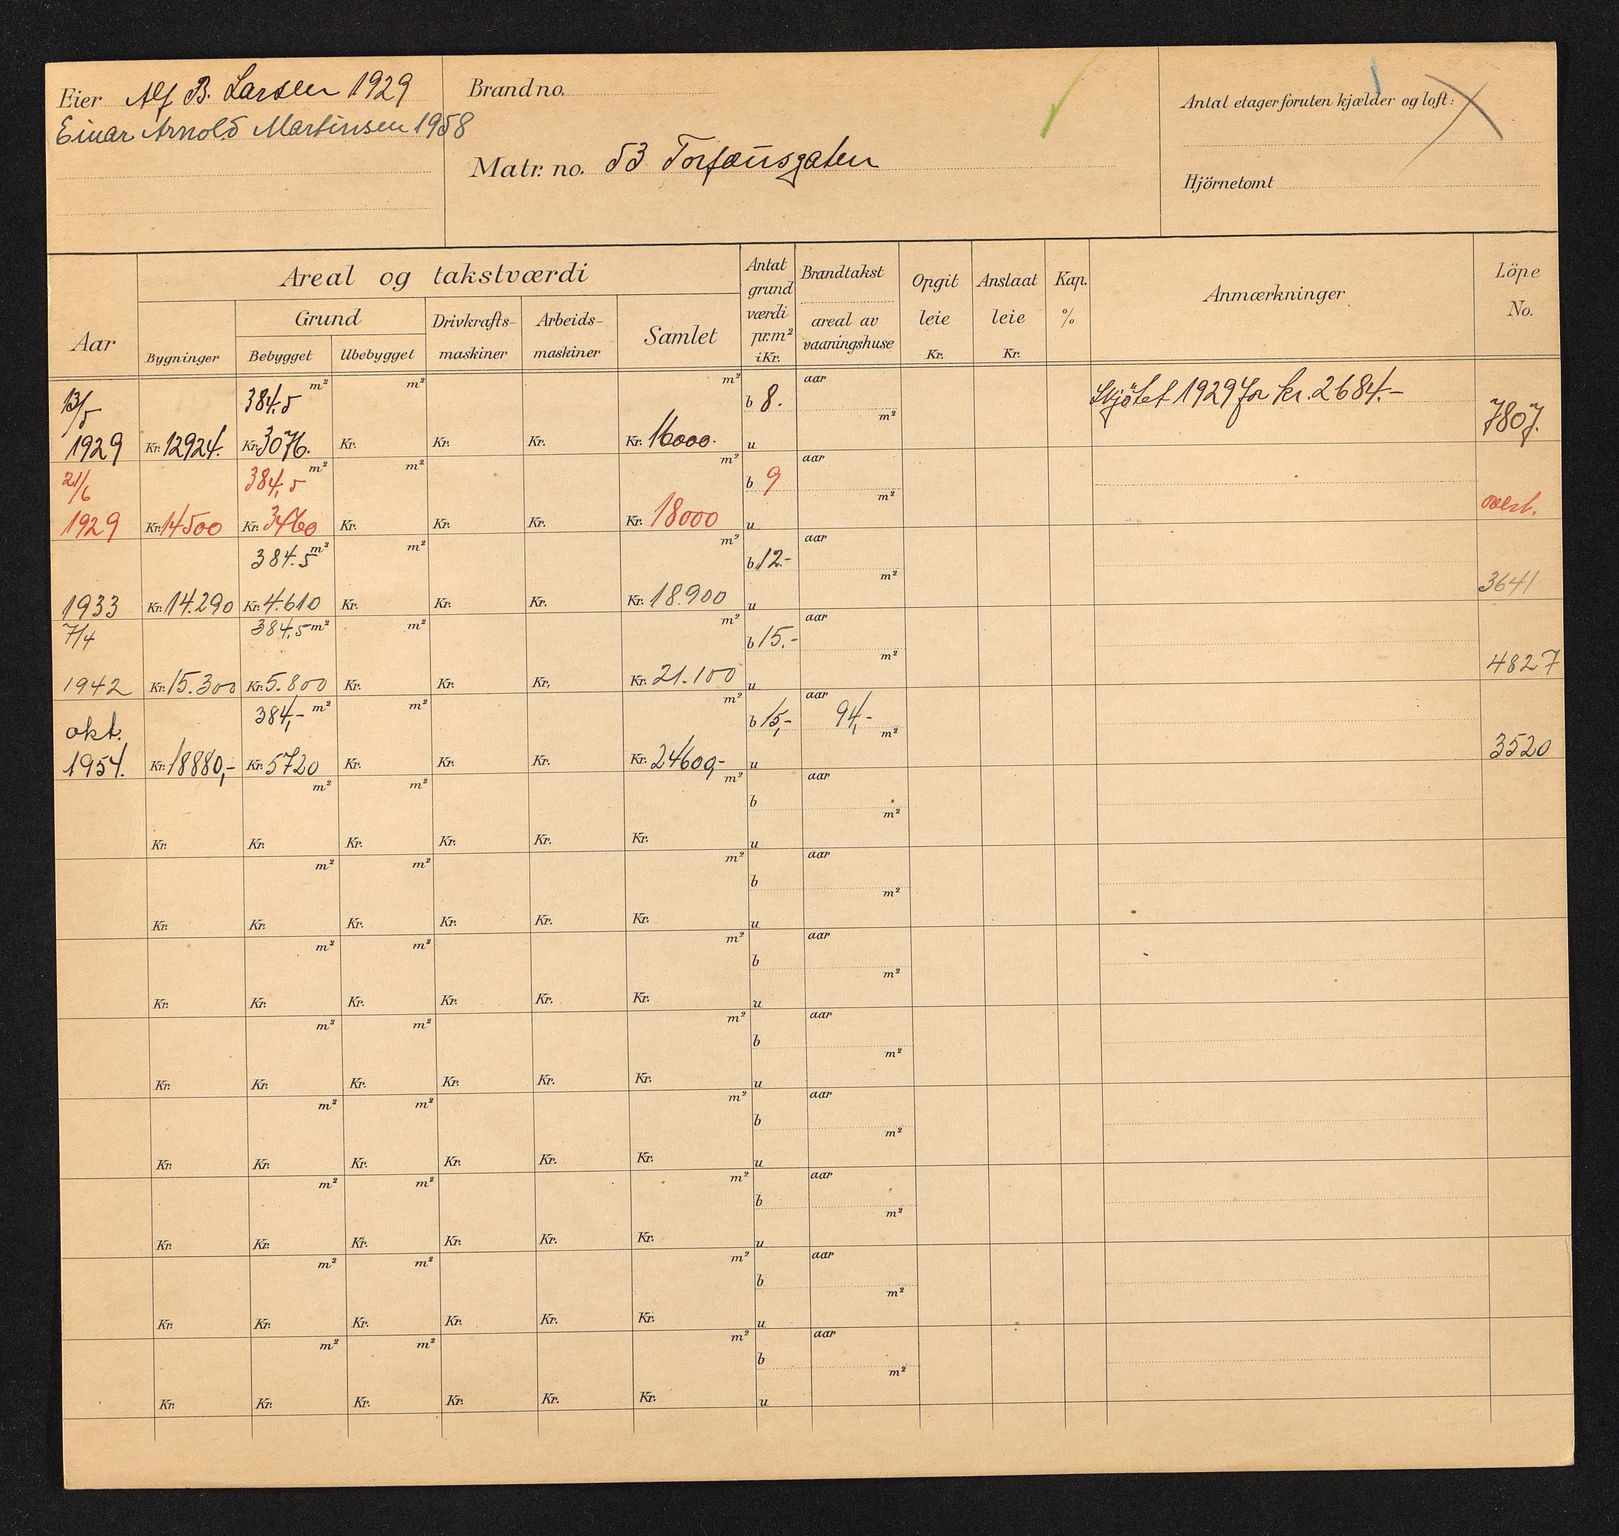 Eier Alf B. Larsen 1929
Einar Arnold Martinsen 1958
Brandno.
Matr. no. 53 Torfæusgaten
Antal etager foruten kjælder og loft:
Hjörnetomt
Areal og takstværdi
Aar
Bygninger
Grund
Bebygget Ubebygget
Drivkrafts-maskiner
Arbeids-maskiner
Samlet
Antat grund værdi pr.m² i Kr.
Brandtakst
areal av vaaningshuse
Opgit leie Kr.
Anslaat leie Kr.
Kap. %
Anmærkninger
Löpe No.
13/5 384.5 m² m² m² b 8. aar Skjötet 1929 for kr. 2684.-
1929 Kr. 12924. Kr. 3076. Kr. Kr. Kr. Kr. 16000. u m² 7807.
21/6 384,5 m² m² m² b 9 aar
1929 Kr. 14500 Kr. 3460 Kr. Kr. Kr. Kr. 18000 u m²
384.5 m² m² m² b 12.- aar
1933 Kr. 14.290 Kr. 4.610 Kr. Kr. Kr. Kr. 18.900 u m² 3641
7/4 384,5 m² m² m² b 15.- aar
1942 Kr. 15.300 Kr. 5.800 Kr. Kr. Kr. Kr. 21.100 u m² 4827
okt. 384,- m² m² m² b 15,- aar 94,-
1954. Kr. 18880,- Kr. 5720 Kr. Kr. Kr. Kr. 24600,- u m² 3520
m² m² m² b aar
Kr. Kr. Kr. Kr. Kr. Kr. u m²
m² m² m² b aar
Kr. Kr. Kr. Kr. Kr. Kr. u m²
m² m² m² b aar
Kr. Kr. Kr. Kr. Kr. Kr. u m²
m² m² m² b aar
Kr. Kr. Kr. Kr. Kr. Kr. u m²
m² m² m² b aar
Kr. Kr. Kr. Kr. Kr. Kr. u m²
m² m² m² b aar
Kr. Kr. Kr. Kr. Kr. Kr. u m²
m² m² m² b aar
Kr. Kr. Kr. Kr. Kr. Kr. u m²
m² m² m² b aar
Kr. Kr. Kr. Kr. Kr. Kr. u m²